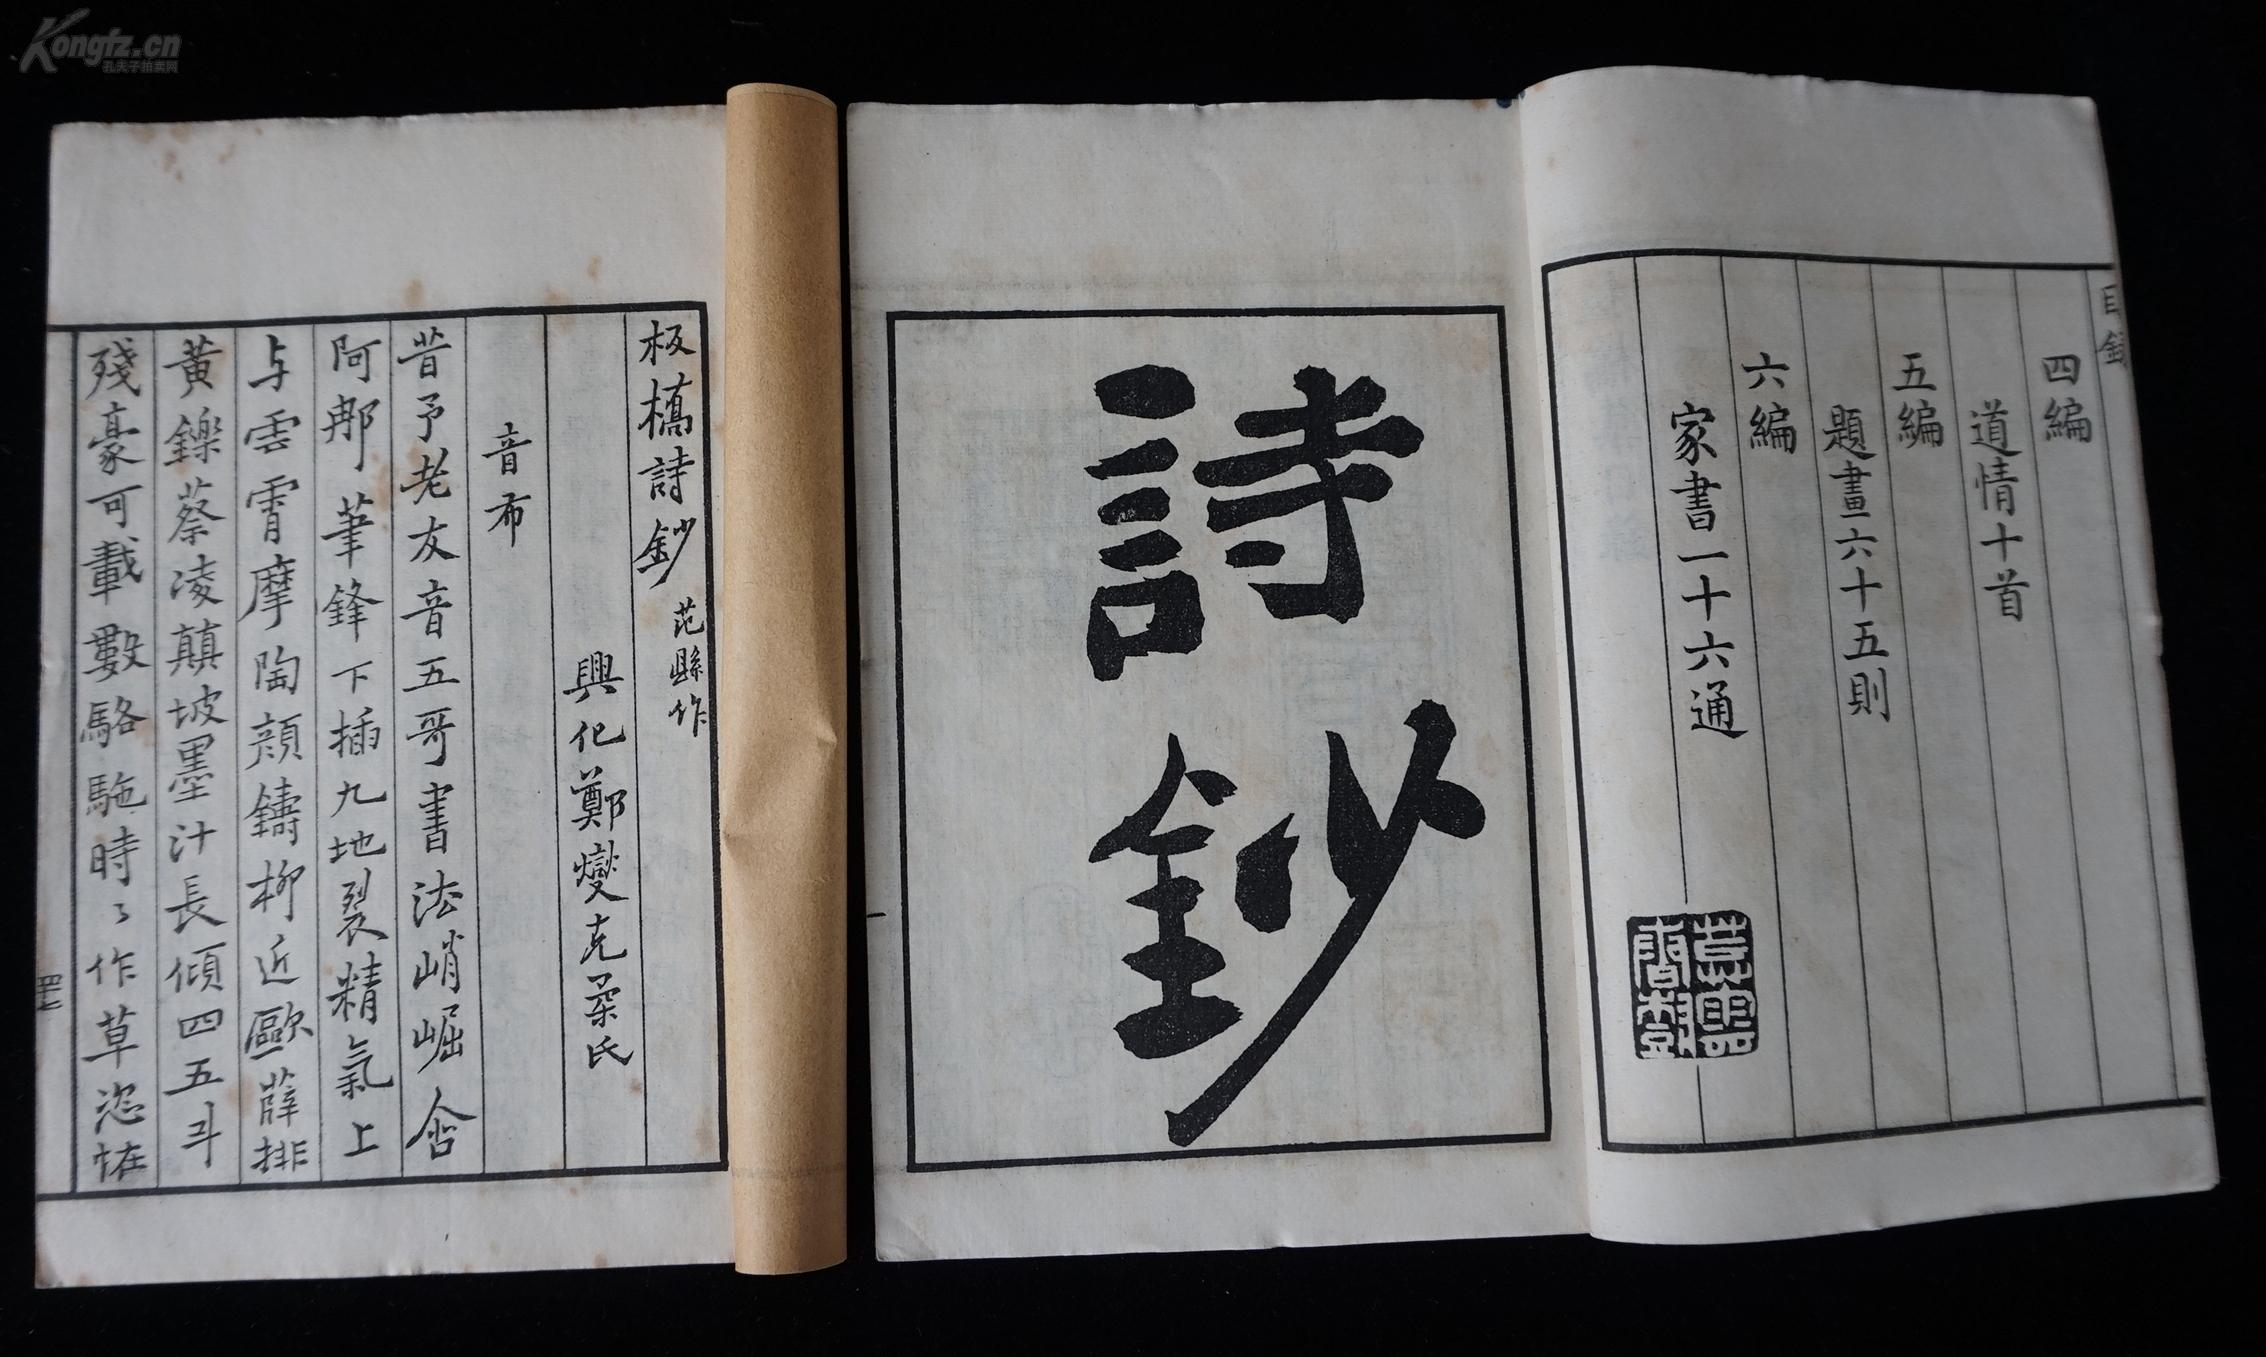 Kongfz.cn
孔夫子拍卖网
目錄
四編
道情十首
五編
題畫六十五則
六編
家書一十六通
詩鈔
板橋詩鈔 范縣作
興化鄭燮克柔氏
音布
昔予老友音五哥書法峭崛含
阿那筆鋒下插九地裂精氣上
与雲霄摩陶顏鑄柳近歐薛排
黃鑠蔡凌顛坡墨汁長傾四五斗
殘豪可載數駱駞時々作草恣怪